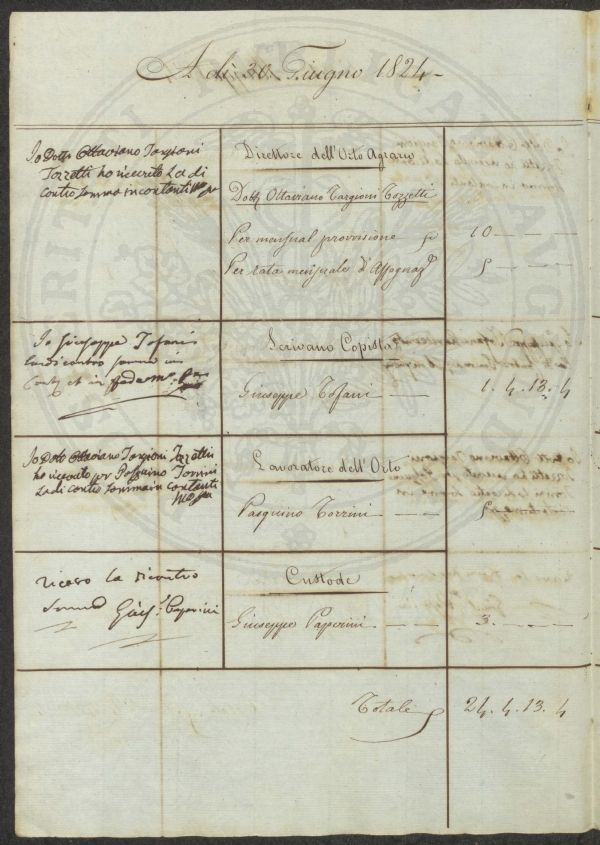 A dì 30 Giugno 1824
Io Dottr Ottaviano Targioni
Tozzetti ho ricevuto La di
contro somma in contanti Mo ppa
Direttore dell'Orto Agrario
Dottr Ottaviano Targioni Tozzetti
Per mensual provvisione 10 — — —
Per rata mensuale d'Assegnaz.e 5 — — —
Io Giuseppe Tofani
la di contro somma in
Scrivano Copista
Giuseppe Tofani — 1. 4. 13. 4
Io Dott Ottaviano Targioni Tozzetti
ho ricevuto pr Pasquino Torrini
La di contro somma in contanti
Mo ppa
Lavoratore dell'Orto
Pasquino Torrini — — 5 — — —
ricevo la dicontro
somma Gius.e Paperini
Custode
Giuseppe Paperini — — 3. — — —
Totale 24. 4. 13. 4